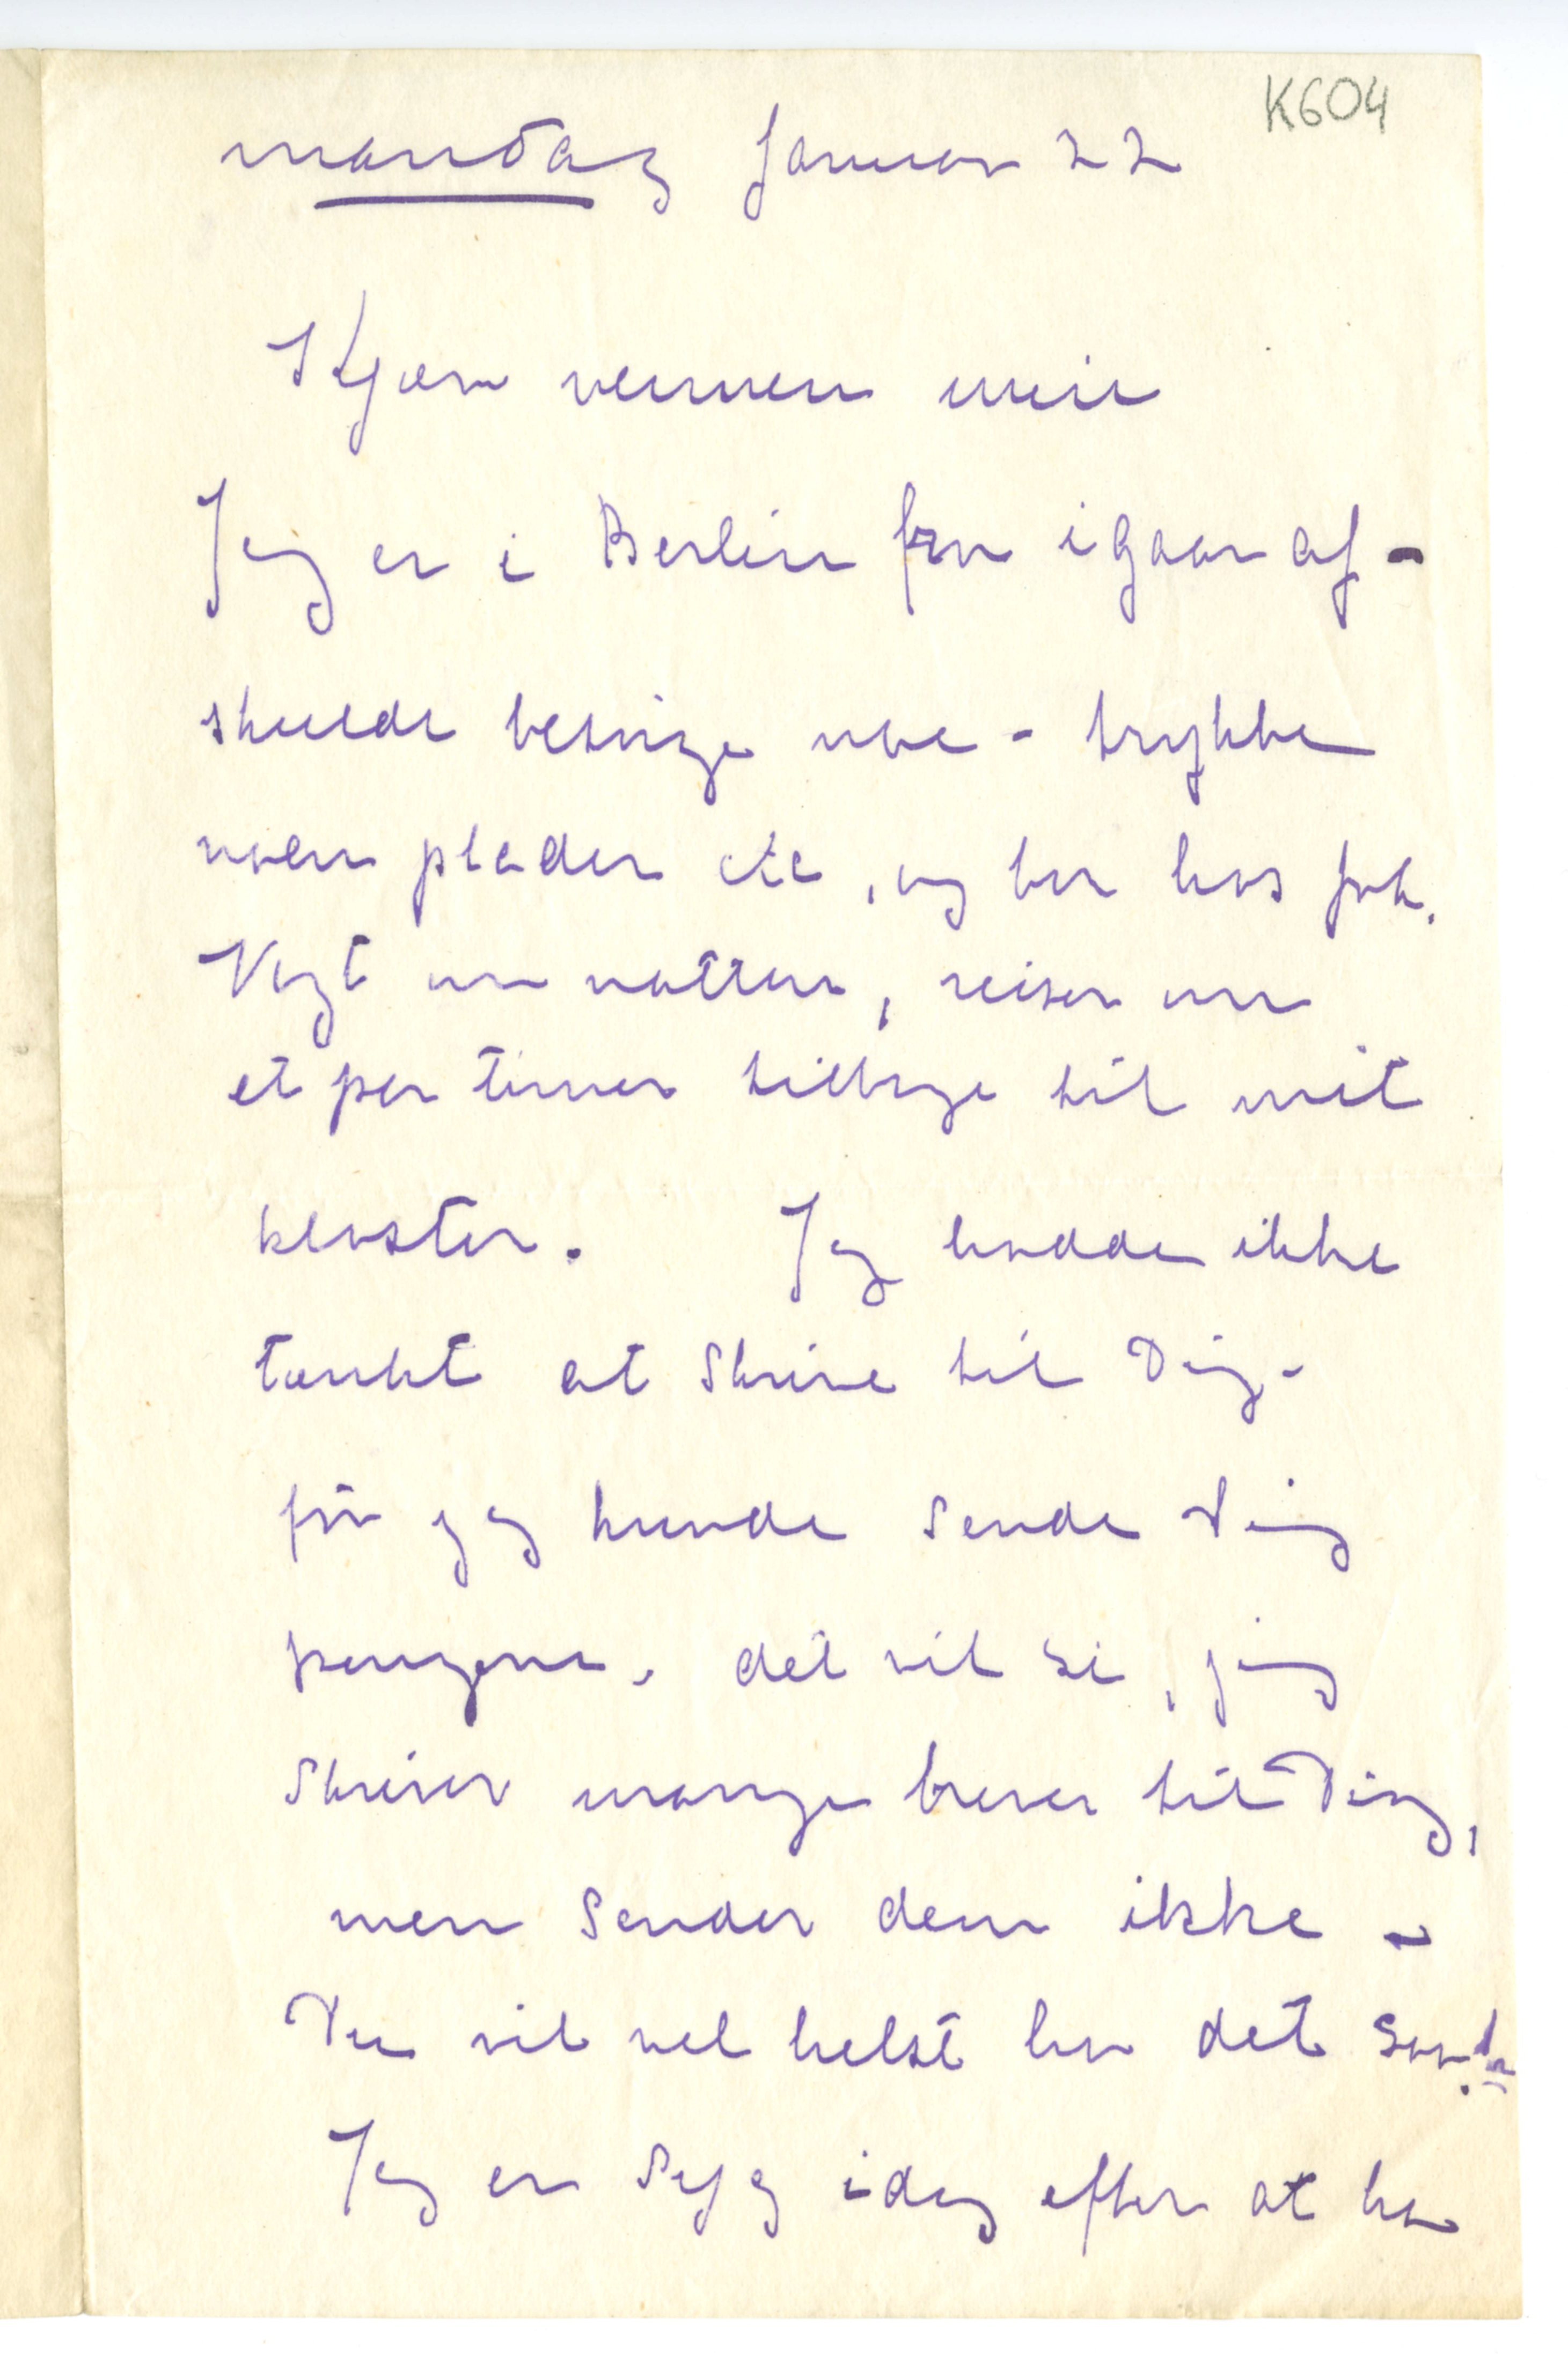 K604
mandag Januar 22
Kjære vennen min
Jeg er i Berlin fra igaar af –
skulde besørge noe – trykke
noen plader etc, og bor hos frk.
Vogt om natten, reiser om
et par timer tilbage til mit
kloster. Jeg hadde ikke
tænkt at skrive til Dig –
før jeg kunde sende Dig
pengene. det vil si, jeg
skriver mange brever til Dig,
men sender dem ikke –
Du vil vel helst ha det
Jeg er syg idag efter at ha